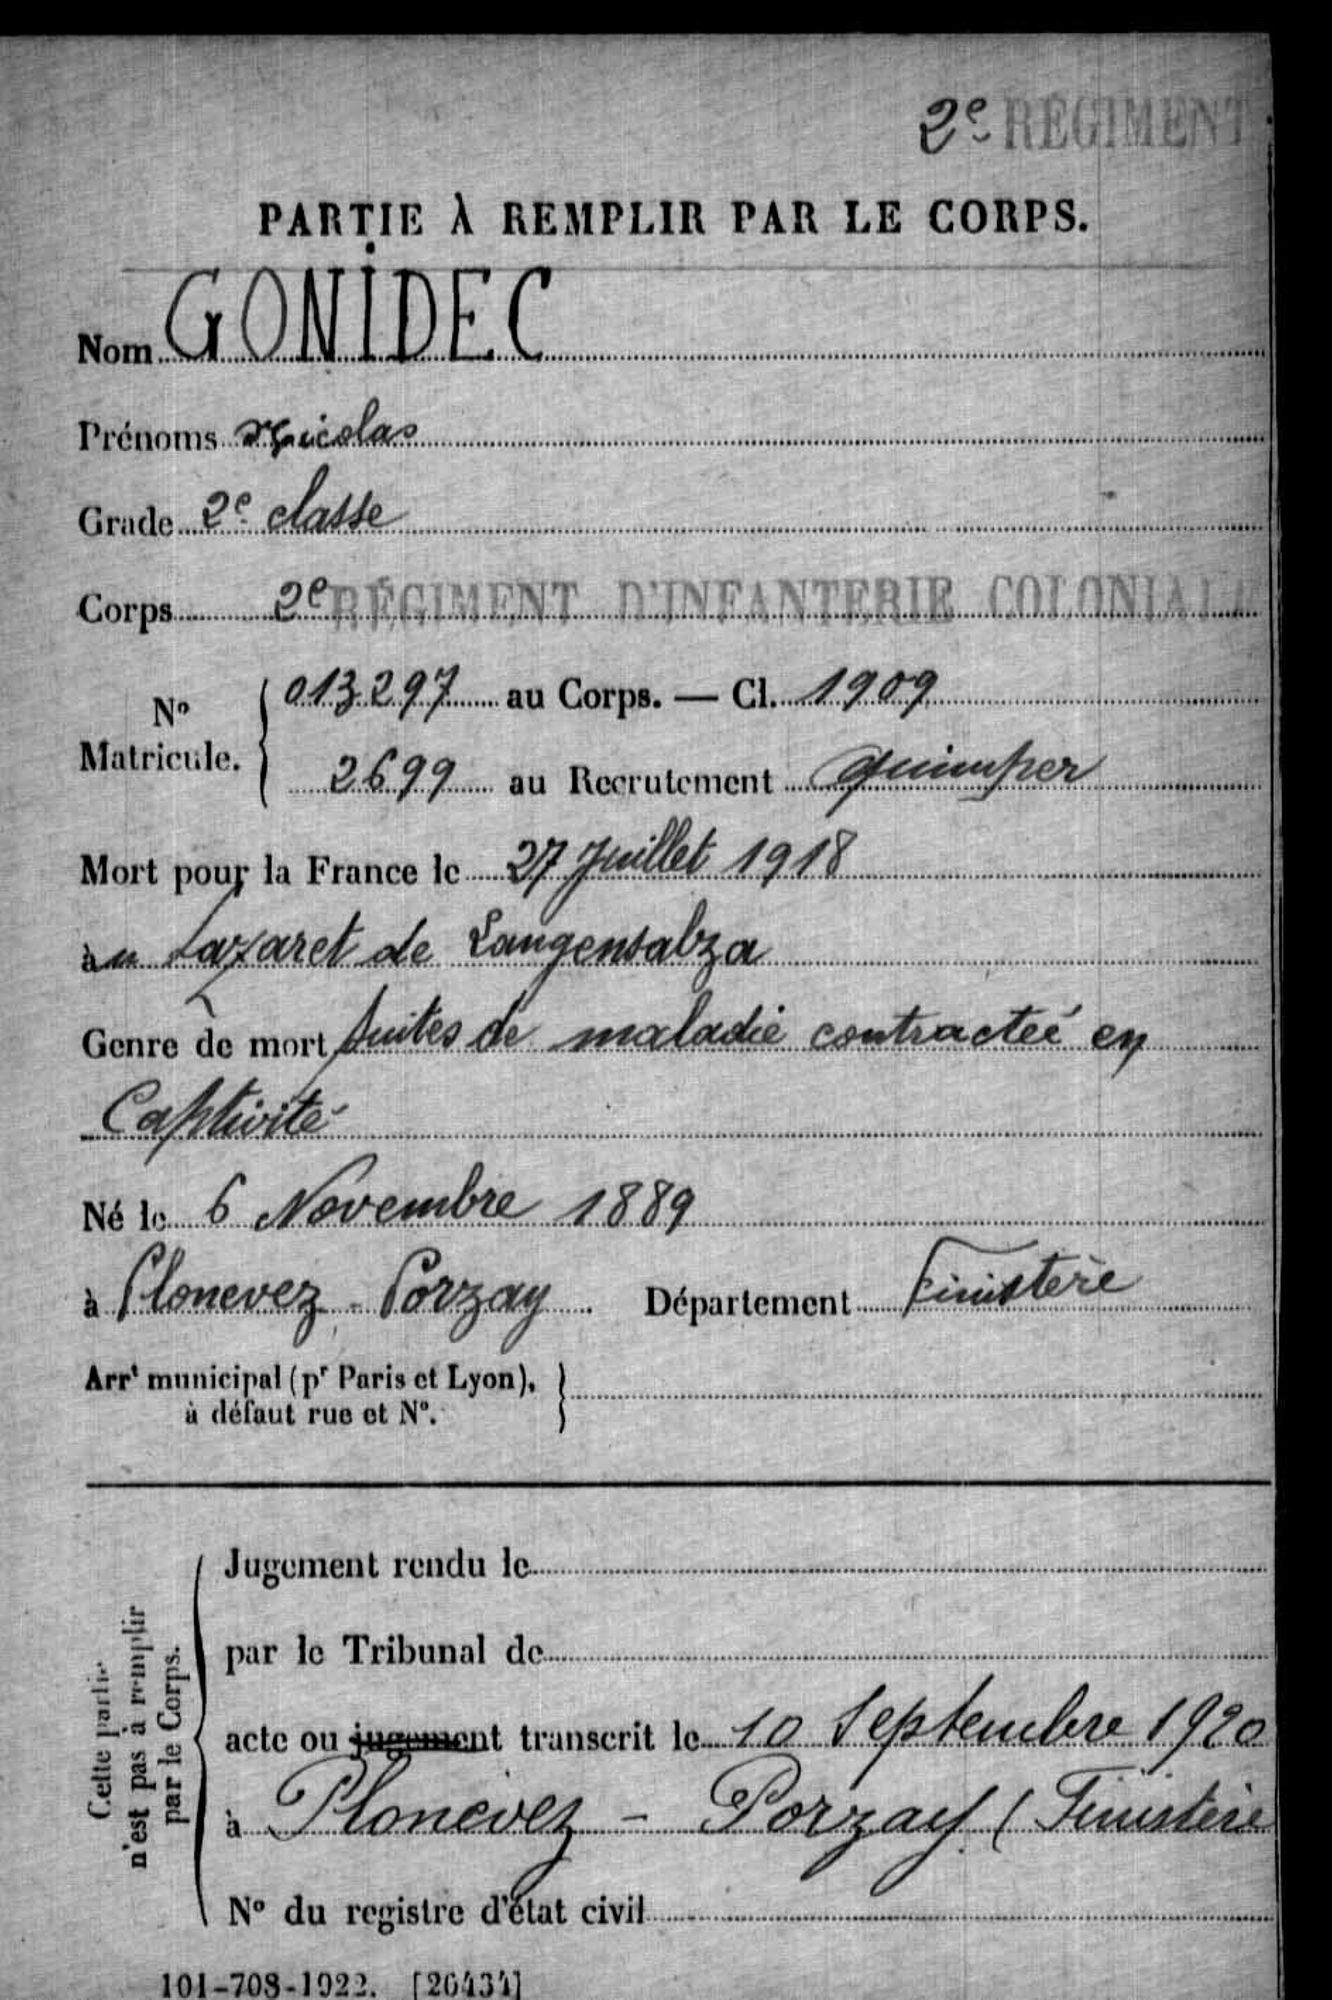 2e RÉGIMENT
PARTIE À REMPLIR PAR LE CORPS.
Nom GONIDEC
Prénoms Nicolas
Grade 2e classe
Corps 2e RÉGIMENT D'INFANTERIE COLONIALE
No Matricule. 013297 au Corps. — Cl. 1909
2699 au Recrutement Quimper
Mort pour la France le 27 Juillet 1918
au Lazaret de Langensalza
Genre de mort suites de maladie contractée en
Captivité
Né le 6 Novembre 1889
à Plonevez-Porzay Département Finistère
Arrt municipal (pr Paris et Lyon),
à défaut rue et N°.
Jugement rendu le
par le Tribunal de
acte ou jugement transcrit le 10 Septembre 1920
à Plonévez - Porzay (Finistère
N° du registre d'état civil
Cette partie
n'est pas à remplir
par le Corps.
101-708-1922. [26434]